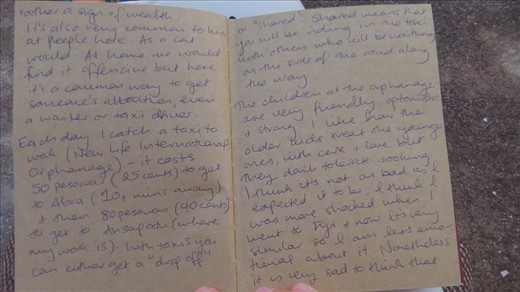 rather a sign of wealth.
It's also very common to hiss
at people here. As a cat
would. At home we would
find it offensive but here
it's a common way to get
someone's attention, even
a waiter or taxi driver.
Each day I catch a taxi to
work (New Life International
Orphanage) - it costs
50 pesowas (25 cents) to get
to Abra (10+ mins away)
& then 80 pesowas (40 cents)
to get to (where
my work is). With taxis you
can either get a "drop off"
or "shared". Shared means that
you will be riding in the taxi
with others who will be waiting
on the side of the road along
the way
The children at the orphanage
are very friendly, optimistic
& strong. I like how the
older kids treat the younger
ones, with care & love but
they don't tolerate sooking.
I think it's not as bad as I
expected it to be, I think I
was more shocked when I
went to Fiji & now it's very
similar so I am less emo-
tional about it. Nonetheless
it is very sad to think that